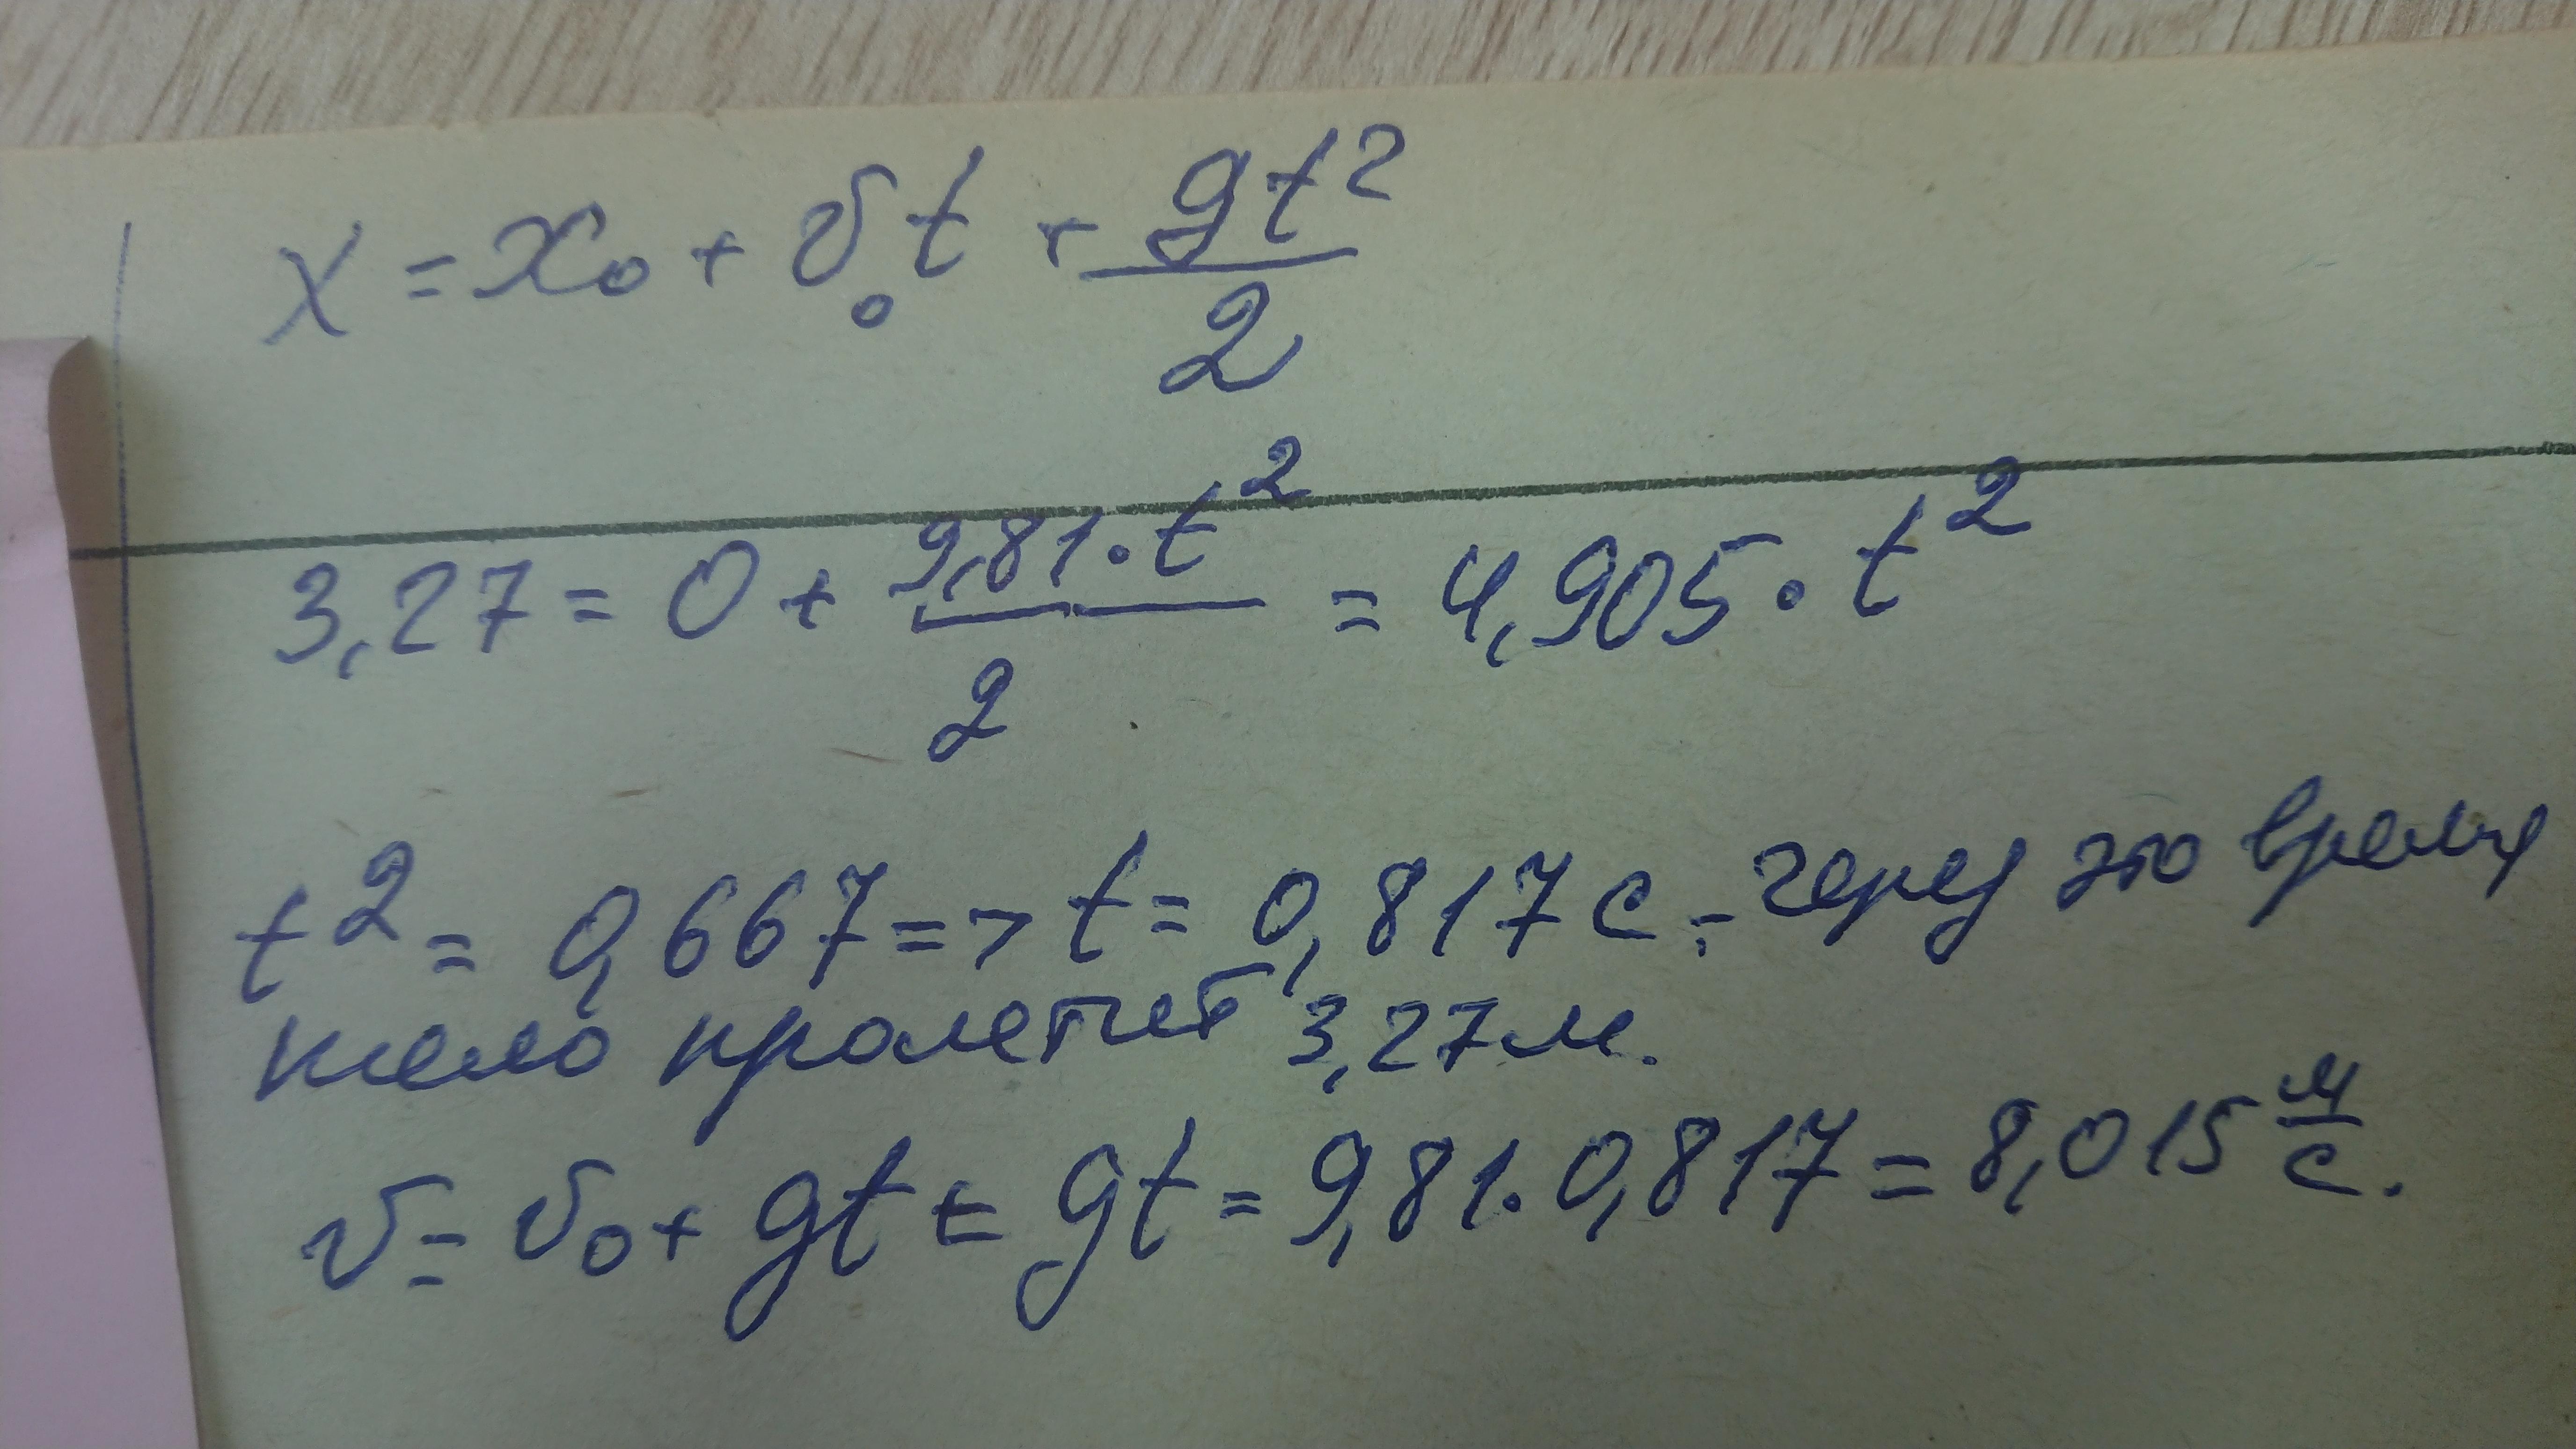 x = x₀ + v₀t + gt²/2
3,27 = 0 + 9,81·t²/2 = 4,905·t²
t² = 0,667 => t = 0,817 с. - через это время
тело пролетит 3,27 м.
v = v₀ + gt = gt = 9,81·0,817 = 8,015 м/с.